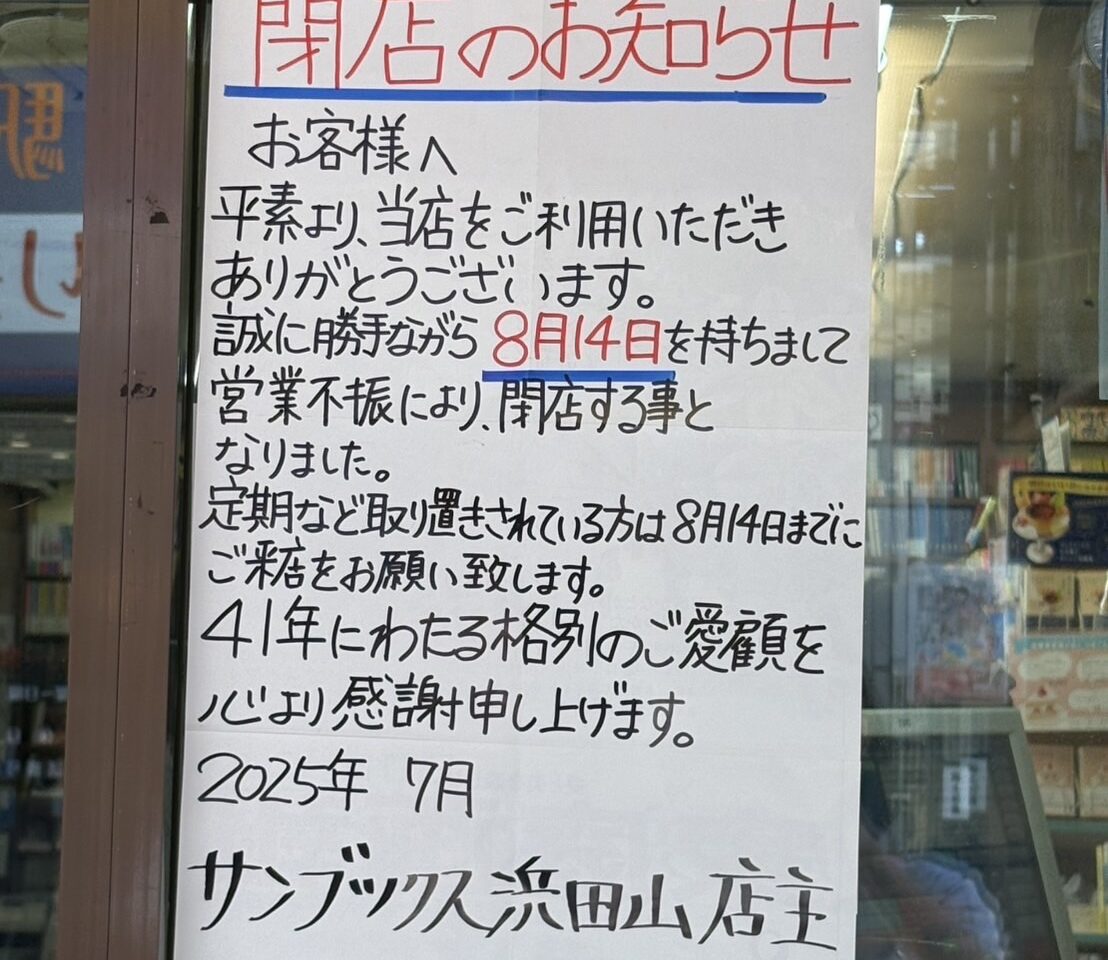 閉店のお知らせ
お客様へ
平素より、当店をご利用いただき
ありがとうございます。
誠に勝手ながら8月14日を持ちまして
営業不振により、閉店する事と
なりました。
定期など取り置きされている方は8月14日までに
ご来店をお願い致します。
41年にわたる格別のご愛顧を
心より感謝申し上げます。
2025年 7月
サンブックス浜田山 店主